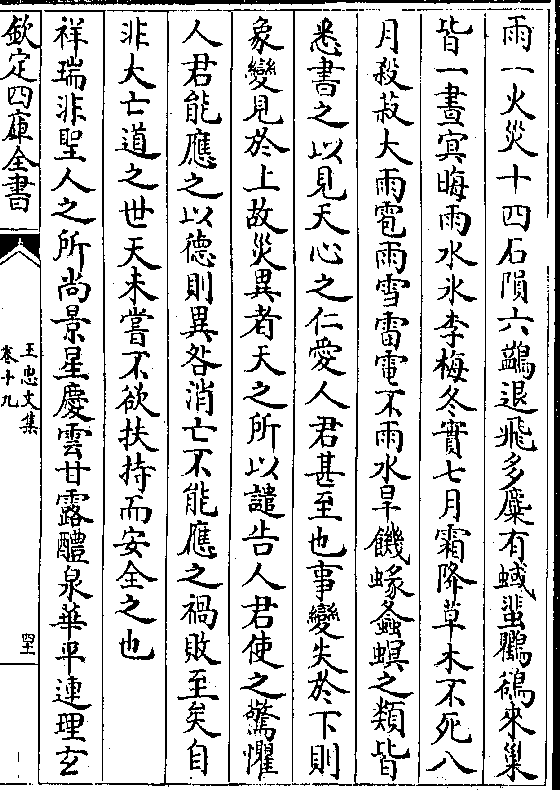 雨一火災十四石隕六鷁退飛多麋有蜮蜚鸜鵒來巢
皆一晝㝠晦雨水氷李梅冬實七月霜降草木不死八
月殺菽大雨雹雨雪雷電不雨水旱饑蝝螽螟之類皆
悉書之以見天心之仁愛人君甚至也事變失於下則
象變見於上故災異者天之所以譴告人君使之驚懼
人君能應之以德則異咎消亡不能應之禍敗至矣自
非大亡道之世天未嘗不欲扶持而安全之也
祥瑞非聖人之所尚景星慶雲甘露醴泉華平連理玄
欽定四庫全書
王忠文集
卷十九